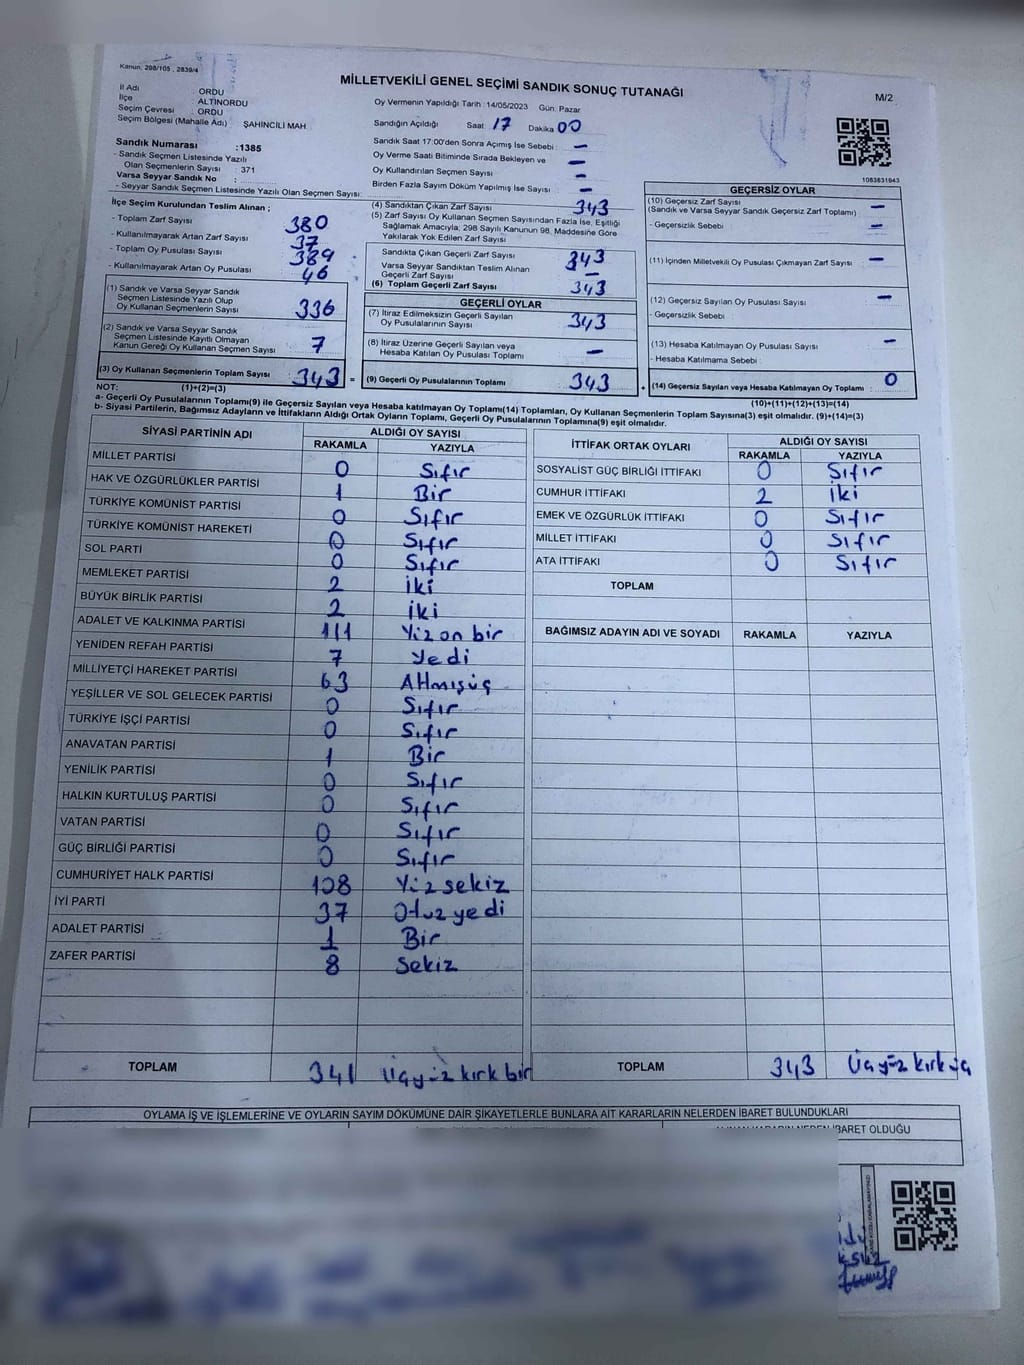 Kanun, 298/105 , 2839/4
MİLLETVEKİLİ GENEL SEÇİMİ SANDIK SONUÇ TUTANAĞI
M/2
İl Adı ORDU
İlçe ALTINORDU
Seçim Çevresi ORDU
Seçim Bölgesi (Mahalle Adı) ŞAHİNCİLİ MAH
Sandık Numarası :1385
- Sandık Seçmen Listesinde Yazılı
Olan Seçmenlerin Sayısı : 371
Varsa Seyyar Sandık No :
- Seyyar Sandık Seçmen Listesinde Yazılı Olan Seçmen Sayısı:
Oy Vermenin Yapıldığı Tarih : 14/05/2023 Gün: Pazar
Sandığın Açıldığı Saat: 17 Dakika 00
Sandık Saat 17:00'den Sonra Açımış İse Sebebi : -
Oy Verme Saati Bitiminde Sırada Bekleyen ve -
Oy Kullandırılan Seçmen Sayısı -
Birden Fazla Sayım Döküm Yapılmış İse Sayısı : -
1083831943
İlçe Seçim Kurulundan Teslim Alınan ;
- Toplam Zarf Sayısı 380
- Kullanılmayarak Artan Zarf Sayısı : 37
- Toplam Oy Pusulası Sayısı 389
- Kullanılmayarak Artan Oy Pusulası 46
(1) Sandık ve Varsa Seyyar Sandık
Seçmen Listesinde Yazılı Olup
Oy Kullanan Seçmenlerin Sayısı 336
(2) Sandık ve Varsa Seyyar Sandık
Seçmen Listesinde Kayıtlı Olmayan
Kanun Gereği Oy Kullanan Seçmen Sayısı 7
(3) Oy Kullanan Seçmenlerin Toplam Sayısı 343 =
(4) Sandıktan Çıkan Zarf Sayısı 343
(5) Zarf Sayısı Oy Kullanan Seçmen Sayısından Fazla İse, Eşitliği
Sağlamak Amacıyla, 298 Sayılı Kanunun 98. Maddesine Göre
Yakılarak Yok Edilen Zarf Sayısı
Sandıkta Çıkan Geçerli Zarf Sayısı 343
Varsa Seyyar Sandıktan Teslim Alınan
Geçerli Zarf Sayısı -
(6) Toplam Geçerli Zarf Sayısı 343
GEÇERLİ OYLAR
(7) İtiraz Edilmeksizin Geçerli Sayılan
Oy Pusulalarının Sayısı 343
(8) İtiraz Üzerine Geçerli Sayılan veya
Hesaba Katılan Oy Pusulası Toplamı -
(9) Geçerli Oy Pusulalarının Toplamı 343 +
GEÇERSİZ OYLAR
(10) Geçersiz Zarf Sayısı -
(Sandık ve Varsa Seyyar Sandık Geçersiz Zarf Toplamı)
- Geçersizlik Sebebi : -
(11) İçinden Milletvekili Oy Pusulası Çıkmayan Zarf Sayısı -
(12) Geçersiz Sayılan Oy Pusulası Sayısı -
- Geçersizlik Sebebi :
(13) Hesaba Katılmayan Oy Pusulası Sayısı -
- Hesaba Katılmama Sebebi :
(14) Geçersiz Sayılan veya Hesaba Katılmayan Oy Toplamı : 0
NOT: (1)+(2)=(3)
(10)+(11)+(12)+(13)=(14)
a- Geçerli Oy Pusulalarının Toplamı(9) ile Geçersiz Sayılan veya Hesaba katılmayan Oy Toplamı(14) Toplamları, Oy Kullanan Seçmenlerin Toplam Sayısına(3) eşit olmalıdır. (9)+(14)=(3)
b- Siyasi Partilerin, Bağımsız Adayların ve İttifakların Aldığı Ortak Oyların Toplamı, Geçerli Oy Pusulalarının Toplamına(9) eşit olmalıdır.
SİYASİ PARTİNİN ADI ALDIĞI OY SAYISI
RAKAMLA YAZIYLA
MİLLET PARTİSİ 0 Sıfır
HAK VE ÖZGÜRLÜKLER PARTİSİ 1 Bir
TÜRKİYE KOMÜNİST PARTİSİ 0 Sıfır
TÜRKİYE KOMÜNİST HAREKETİ 0 Sıfır
SOL PARTİ 0 Sıfır
MEMLEKET PARTİSİ 2 İki
BÜYÜK BİRLİK PARTİSİ 2 İki
ADALET VE KALKINMA PARTİSİ 111 Yüz on bir
YENİDEN REFAH PARTİSİ 7 Yedi
MİLLİYETÇİ HAREKET PARTİSİ 63 Altmışüç
YEŞİLLER VE SOL GELECEK PARTİSİ 0 Sıfır
TÜRKİYE İŞÇİ PARTİSİ 0 Sıfır
ANAVATAN PARTİSİ 1 Bir
YENİLİK PARTİSİ 0 Sıfır
HALKIN KURTULUŞ PARTİSİ 0 Sıfır
VATAN PARTİSİ 0 Sıfır
GÜÇ BİRLİĞİ PARTİSİ 0 Sıfır
CUMHURİYET HALK PARTİSİ 108 Yüz sekiz
İYİ PARTİ 37 Otuz yedi
ADALET PARTİSİ 1 Bir
ZAFER PARTİSİ 8 Sekiz
TOPLAM 341 Üçyüz kırk bir
İTTİFAK ORTAK OYLARI ALDIĞI OY SAYISI
RAKAMLA YAZIYLA
SOSYALİST GÜÇ BİRLİĞİ İTTİFAKI 0 Sıfır
CUMHUR İTTİFAKI 2 İki
EMEK VE ÖZGÜRLÜK İTTİFAKI 0 Sıfır
MİLLET İTTİFAKI 0 Sıfır
ATA İTTİFAKI 0 Sıfır
TOPLAM
BAĞIMSIZ ADAYIN ADI VE SOYADI RAKAMLA YAZIYLA
TOPLAM 343 Üçyüz kırk üç
OYLAMA İŞ VE İŞLEMLERİNE VE OYLARIN SAYIM DÖKÜMÜNE DAİR ŞİKAYETLERLE BUNLARA AİT KARARLARIN NELERDEN İBARET BULUNDUKLARI
ALINAN KARARIN NEDEN İBARET OLDUĞU